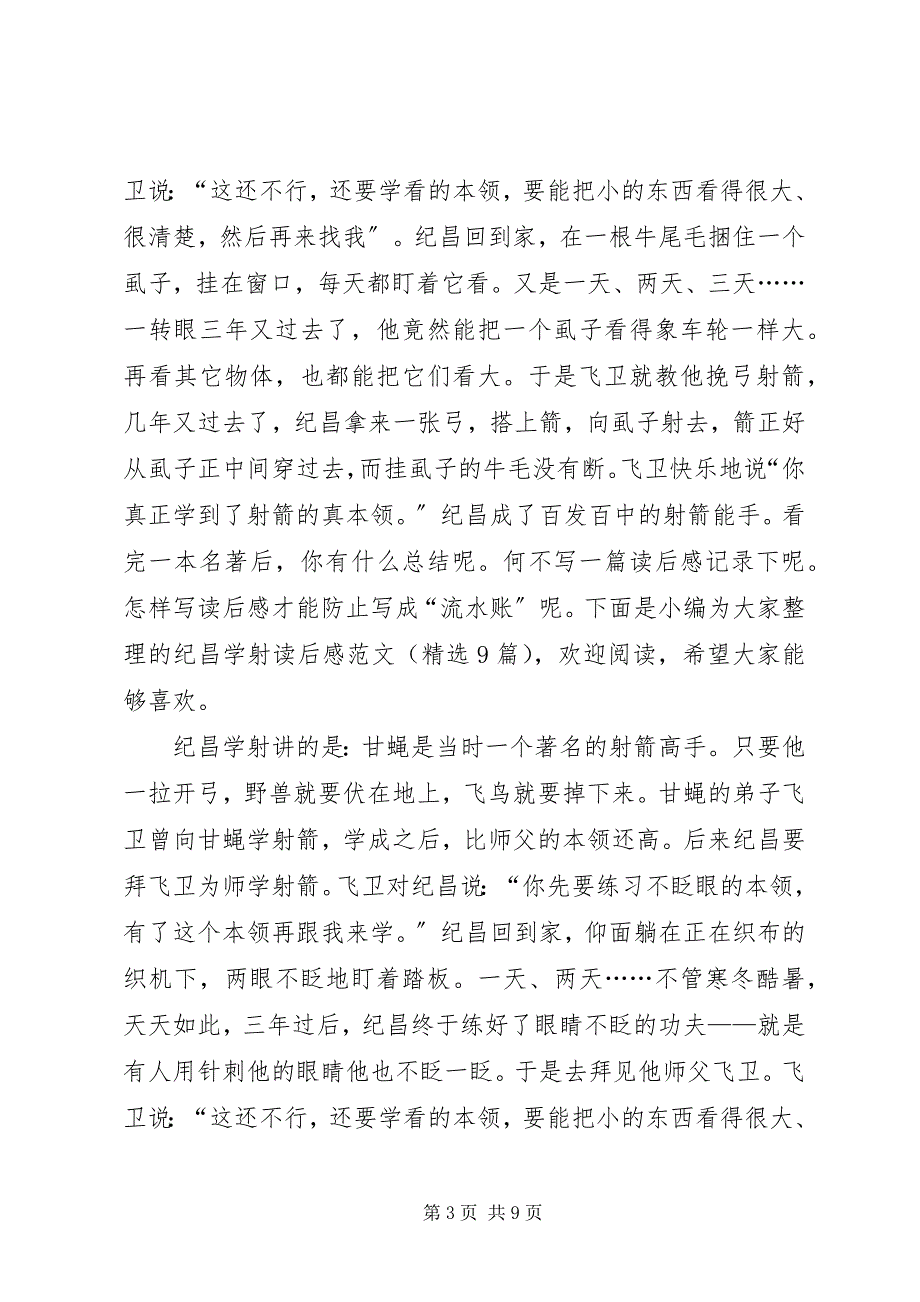 卫说：“这还不行，还要学看的本领，要能把小的东西看得很大、
很清楚，然后再来找我〞。纪昌回到家，在一根牛尾毛捆住一个
虱子，挂在窗口，每天都盯着它看。又是一天、两天、三天……
一转眼三年又过去了，他竟然能把一个虱子看得象车轮一样大。
再看其它物体，也都能把它们看大。于是飞卫就教他挽弓射箭，
几年又过去了，纪昌拿来一张弓，搭上箭，向虱子射去，箭正好
从虱子正中间穿过去，而挂虱子的牛毛没有断。飞卫快乐地说“你
真正学到了射箭的真本领。〞纪昌成了百发百中的射箭能手。看
完一本名著后，你有什么总结呢。何不写一篇读后感记录下呢。
怎样写读后感才能防止写成“流水账〞呢。下面是小编为大家整
理的纪昌学射读后感范文（精选 9 篇），欢迎阅读，希望大家能
够喜欢。
纪昌学射讲的是：甘蝇是当时一个著名的射箭高手。只要他
一拉开弓，野兽就要伏在地上，飞鸟就要掉下来。甘蝇的弟子飞
卫曾向甘蝇学射箭，学成之后，比师父的本领还高。后来纪昌要
拜飞卫为师学射箭。飞卫对纪昌说：“你先要练习不眨眼的本领，
有了这个本领再跟我来学。〞纪昌回到家，仰面躺在正在织布的
织机下，两眼不眨地盯着踏板。一天、两天……不管寒冬酷暑，
天天如此，三年过后，纪昌终于练好了眼睛不眨的功夫——就是
有人用针刺他的眼睛他也不眨一眨。于是去拜见他师父飞卫。飞
卫说：“这还不行，还要学看的本领，要能把小的东西看得很大、
第 3 页 共 9 页